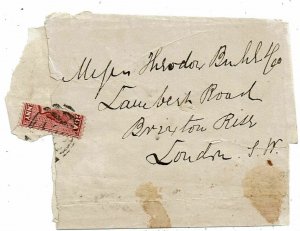 Messrs Theodor Buhl & Co
Lambert Road
Brixton Rise
London. S.W.